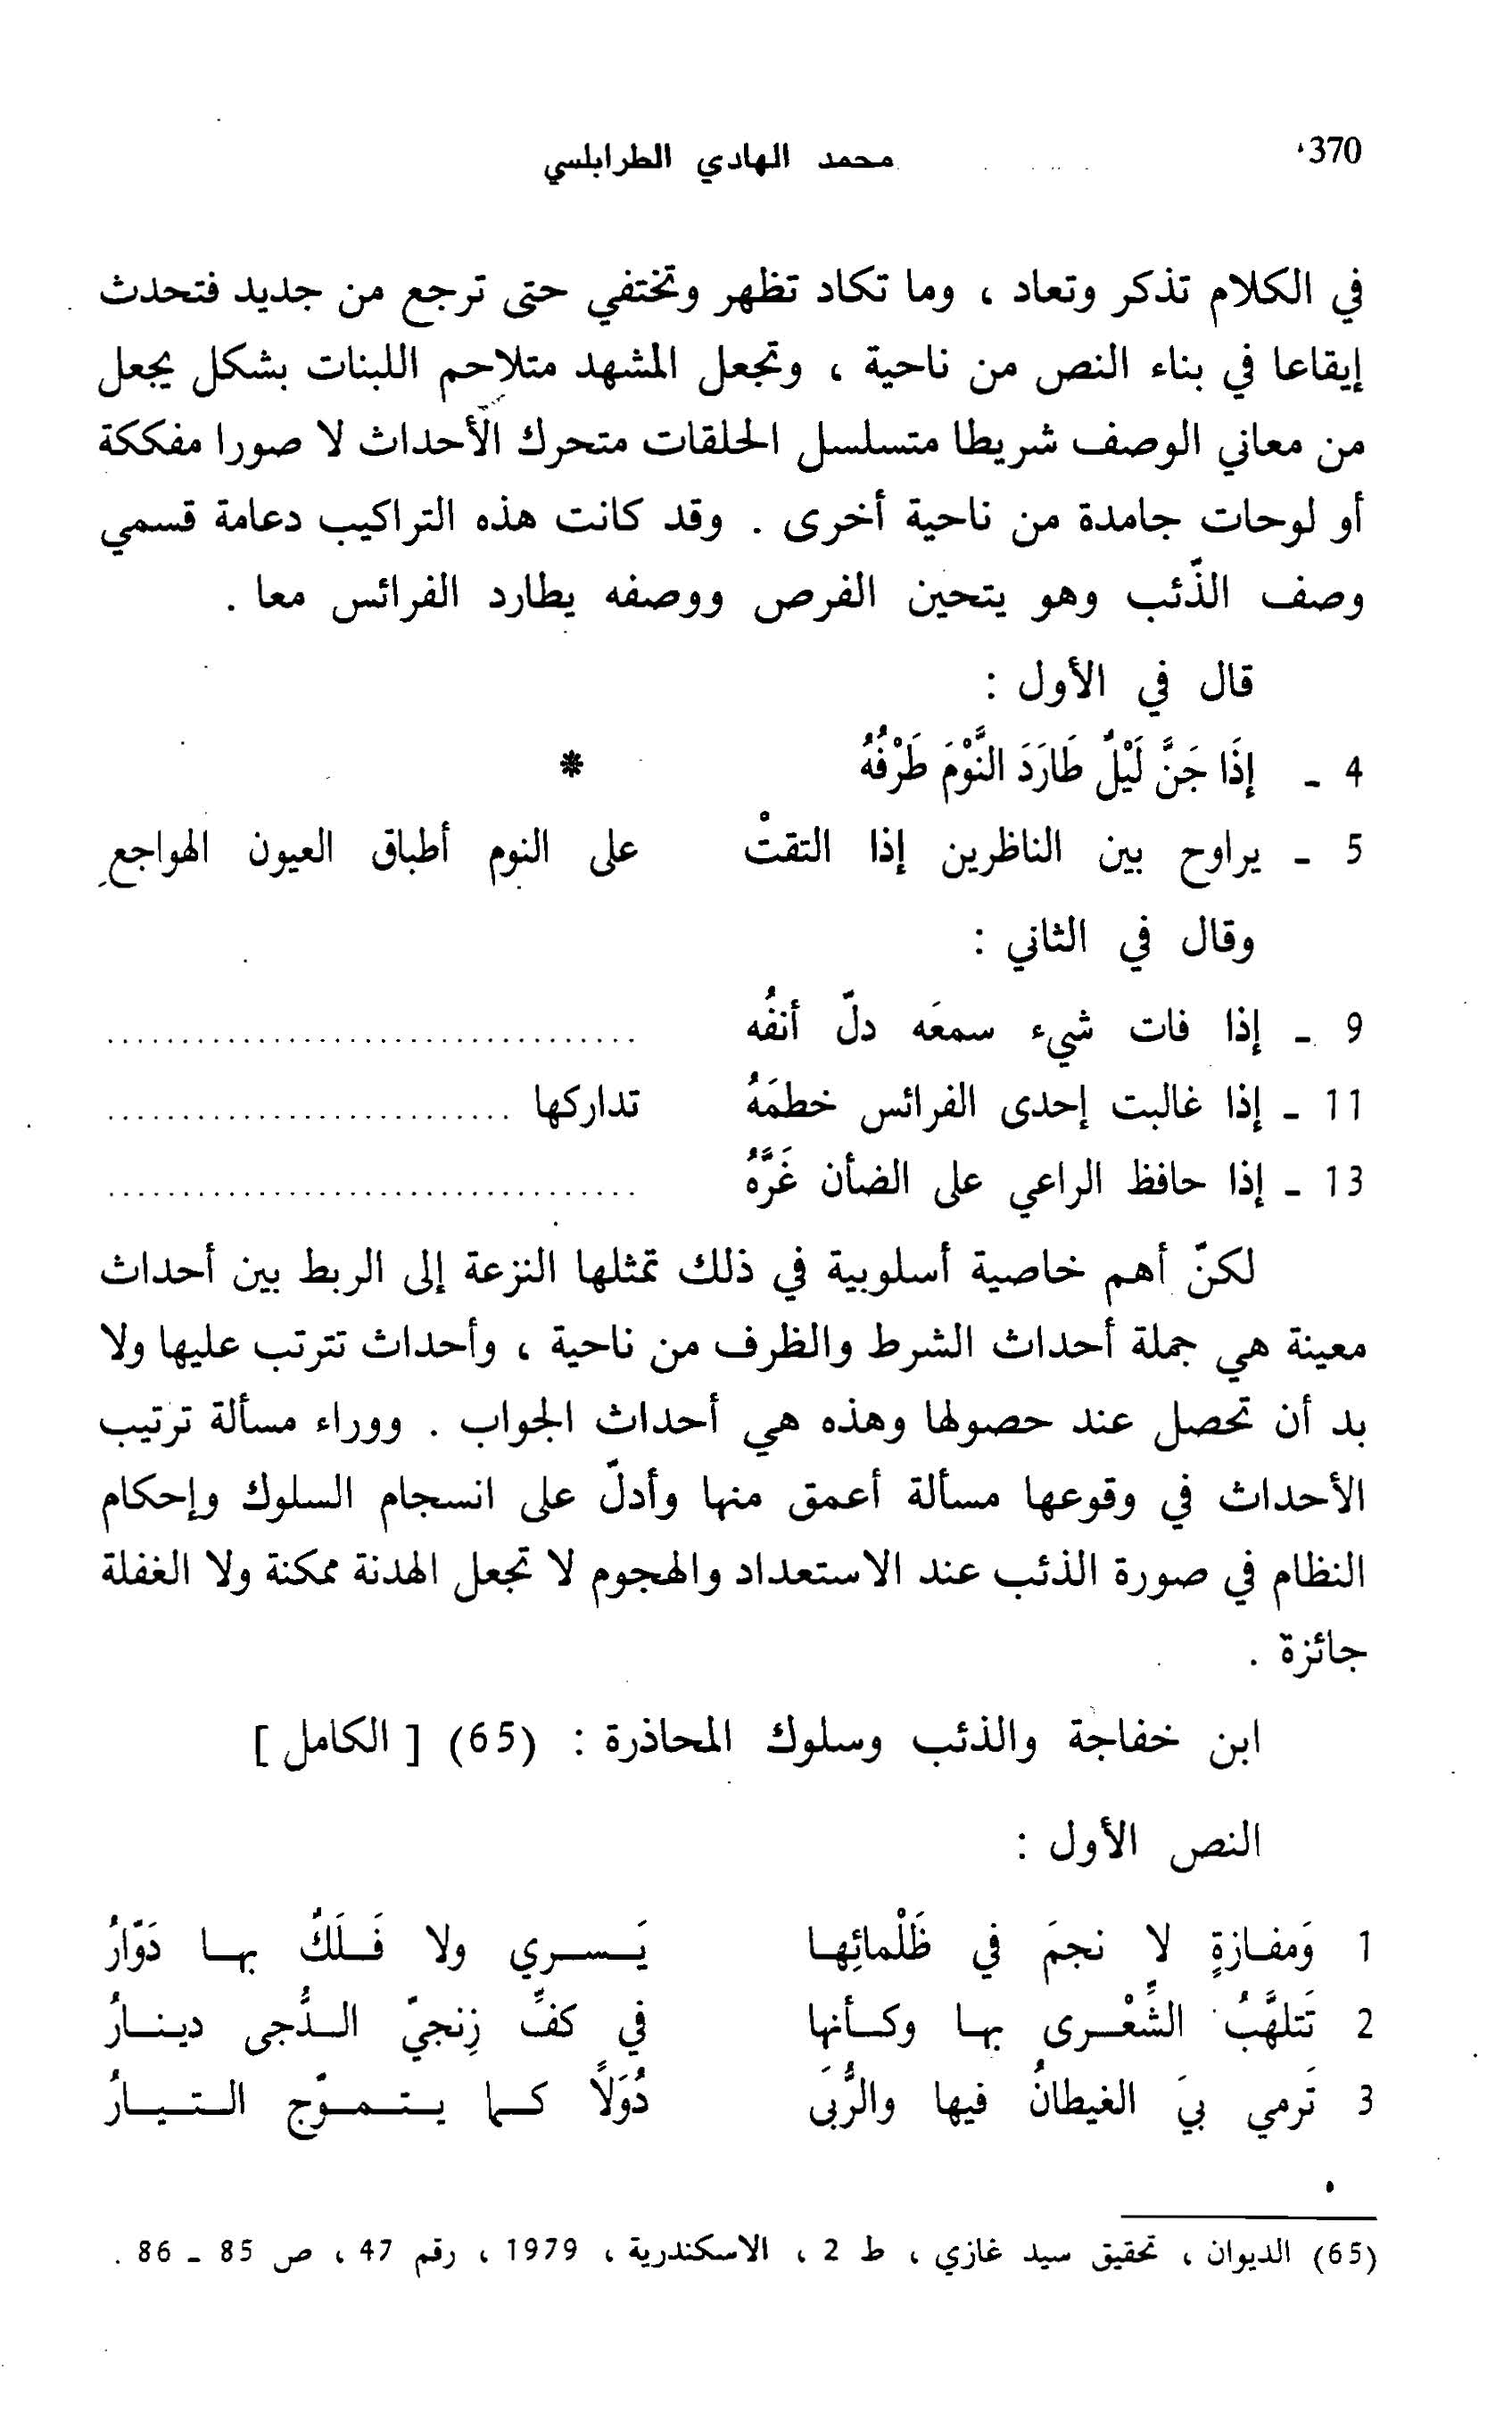 370 محمد الهادي الطرابلسي
في الكلام تذكر وتعاد ، وما تكاد تظهر وتختفي حتى ترجع من جديد فتحدث
إيقاعا في بناء النص من ناحية ، وتجعل المشهد متلاحم اللبنات بشكل يجعل
من معاني الوصف شريطا متسلسل الحلقات متحرك الأحداث لا صورا مفككة
أو لوحات جامدة من ناحية أخرى . وقد كانت هذه التراكيب دعامة قسمي
وصف الذّئب وهو يتحين الفرص ووصفه يطارد الفرائس معا .
قال في الأول :
4 - إذَا جَنَّ لَيْلٌ طَارَدَ النَّوْمَ طَرْفُهُ *
5 - يراوح بين الناظرين إذا التقتْ على النوم أطباق العيون الهواجعِ
وقال في الثاني :
9 - إذا فات شيء سمعَه دلّ أنفُه ....................................
11 - إذا غالبت إحدى الفرائس خطمَهُ تداركها ...........................
13 - إذا حافظ الراعي على الضأن غَرَّهُ ....................................
لكنّ أهم خاصية أسلوبية في ذلك تمثلها النزعة إلى الربط بين أحداث
معينة هي جملة أحداث الشرط والظرف من ناحية ، وأحداث تترتب عليها ولا
بد أن تحصل عند حصولها وهذه هي أحداث الجواب . ووراء مسألة ترتيب
الأحداث في وقوعها مسألة أعمق منها وأدلّ على انسجام السلوك وإحكام
النظام في صورة الذئب عند الاستعداد والهجوم لا تجعل الهدنة ممكنة ولا الغفلة
جائزة .
ابن خفاجة والذئب وسلوك المحاذرة : (65) [ الكامل ]
النص الأول :
1 وَمفـازةٍ لا نجمَ في ظَلْمائِهـا يَـسـري ولا فَـلَكٌ بهـا دَوّارُ
2 تَتلهَّبُ الشِّعْـرى بهـا وكـأنها في كفِّ زِنجيّ الـدُّجى دينـارُ
3 تَرمي بيَ الغيطانُ فيها والرُّبَى دُوَلاً كـما يـتـمـوّج الـتـيـارُ
(65) الديوان ، تحقيق سيد غازي ، ط 2 ، الاسكندرية ، 1979 ، رقم 47 ، ص 85 - 86 .